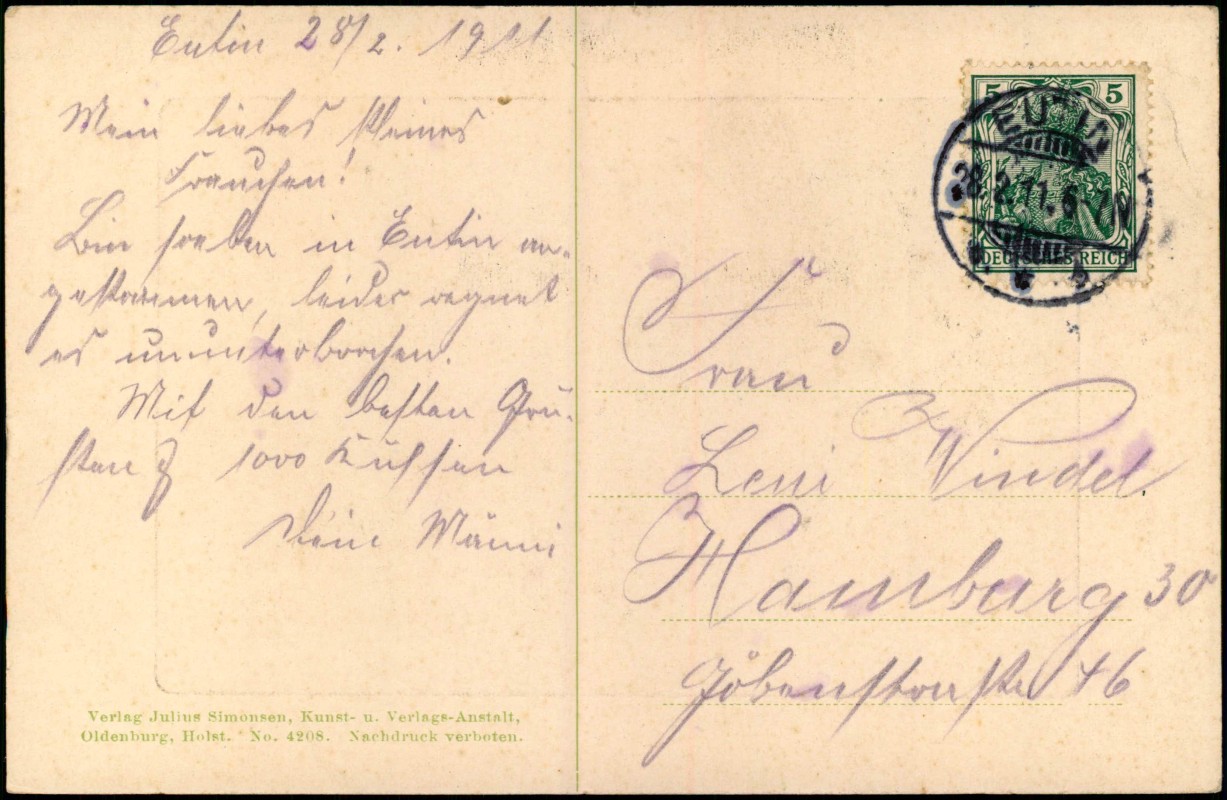 Eutin 28/2. 1911
Mein liebes kleines
Frauchen!
Bin soeben in Eutin an-
gekommen, leider regnet
es ununterbrochen.
Mit den besten Grü-
ssten & 1000 Küssen
Dein Männi
Verlag Julius Simonsen, Kunst- u. Verlags-Anstalt,
Oldenburg, Holst. No. 4208. Nachdruck verboten.
5 5
DEUTSCHES REICH
EUTIN
28.2.11.6-7N
Frau
Leni Windel.
Hamburg 30
46